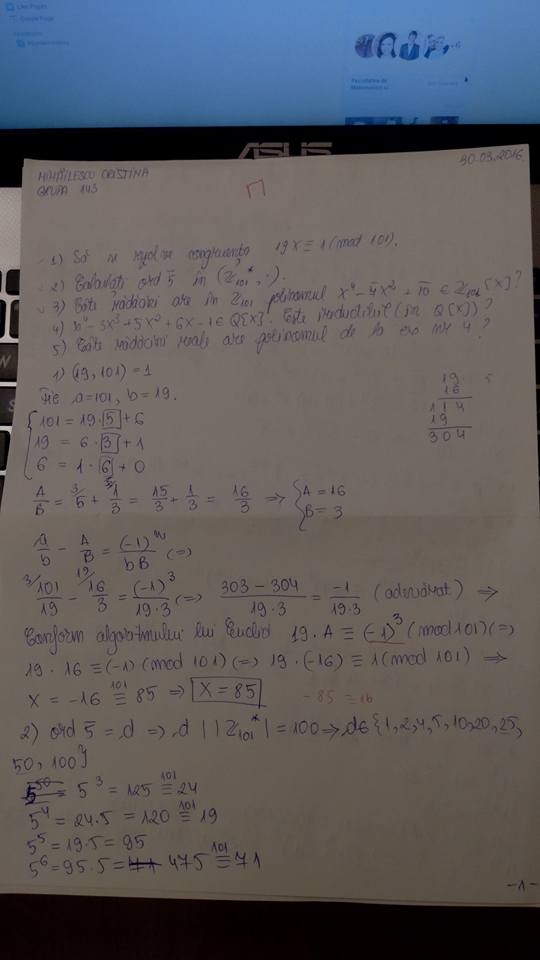 Live Pages
Google Page
+6
Facultatea de
Matematica si
ASUS
MIHĂILESCU CRISTINA
GRUPA 143
30.03.2016
1) Să se rezolve congruența 19X ≡ 1 (mod 101).
2) Calculați ord 5̄ în (ℤ₁₀₁*, ·).
3) Câte rădăcini are în ℤ₁₀₁ polinomul
4) X⁴ - 3X³ + 5X² + 6X - 1 ∈ Q[X]. Este ireductibil (în Q[X])?
5) Câte rădăcini reale are polinomul de la ex. nr 4?
1) (19, 101) = 1
Fie a=101, b=19.
19·
16
114
19
304
101 = 19·5 + 6
19 = 6·3 + 1
6 = 1·6 + 0
A/B = ³⁾5 + 1/3 = 15/3 + 1/3 = 16/3 => { A = 16
B = 3
a/b - A/B = (-1)ⁿ/bB (=)
³⁾101/19 - ¹⁹⁾16/3 = (-1)³/19·3 (=) 303-304/19·3 = -1/19·3 (adevărat) =>
Conform algoritmului lui Euclid 19·A ≡ (-1)³ (mod 101) (=)
19·16 ≡ (-1) (mod 101) (=) 19·(-16) ≡ 1 (mod 101) =>
X = -16 ≡¹⁰¹ 85 => X = 85
-85 ≡ 16
2) ord 5̄ = d => d | |ℤ₁₀₁*| = 100 => d∈{1, 2, 4, 5, 10, 20, 25,
50, 100}
5⁵⁰ = 5³ = 125 ≡¹⁰¹ 24
5⁴ = 24·5 = 120 ≡¹⁰¹ 19
5⁵ = 19·5 = 95
5⁶ = 95·5 = 475 ≡¹⁰¹ 71
-1-